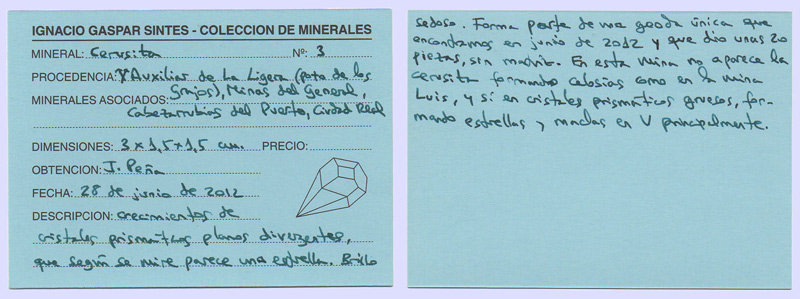 IGNACIO GASPAR SINTES - COLECCION DE MINERALES
MINERAL: Cerusita Nº: 3
PROCEDENCIA: Auxiliar de La Ligera (pata de los
Grajos), Minas del General,
MINERALES ASOCIADOS:
Cabezarrubias del Puerto, Ciudad Real
DIMENSIONES: 3 x 1,5 x 1,5 cm. PRECIO:
OBTENCION: J. Peña
FECHA: 28 de junio de 2012
DESCRIPCION: crecimientos de
cristales prismáticos planos divergentes,
que según se mire parece una estrella. Brillo
sedoso. Forma parte de una geoda única que
encontramos en junio de 2012 y que dio unas 20
piezas, sin matriz. En esta mina no aparece la
cerusita formando celosías como en la mina
Luis, y sí en cristales prismáticos gruesos, for-
mando estrellas y maclas en V principalmente.